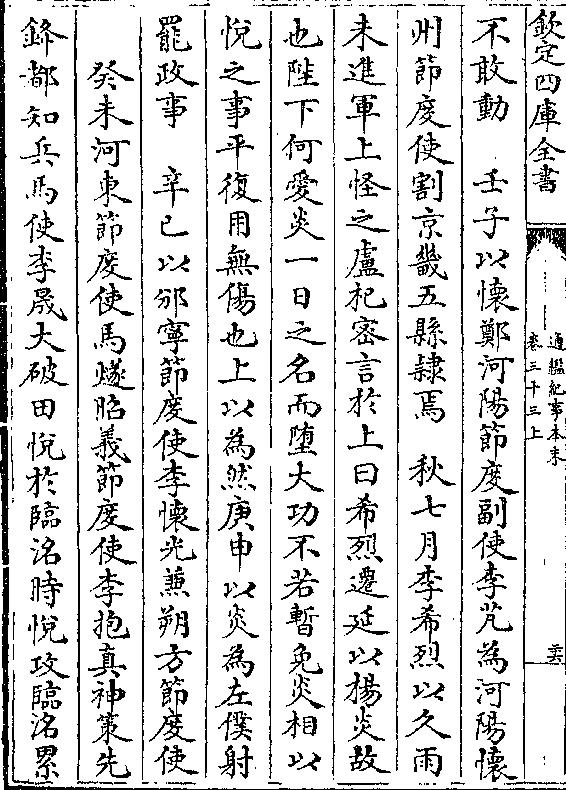 欽定四庫全書
通鑑紀事本末
卷三十三上
三六
不敢動　壬子以懷鄭河陽節度副使李艽為河陽懷
州節度使割京畿五縣隷焉　秋七月李希烈以久雨
未進軍上怪之盧杞密言於上曰希烈遷延以楊炎故
也陛下何愛炎一日之名而墮大功不若暫免炎相以
悅之事平復用無傷也上以為然庚申以炎為左僕射
罷政事　辛巳以邠寧節度使李懷光兼朔方節度使
癸未河東節度使馬燧昭義節度使李抱真神策先
鋒都知兵馬使李晟大破田悅於臨洺時悅攻臨洺累